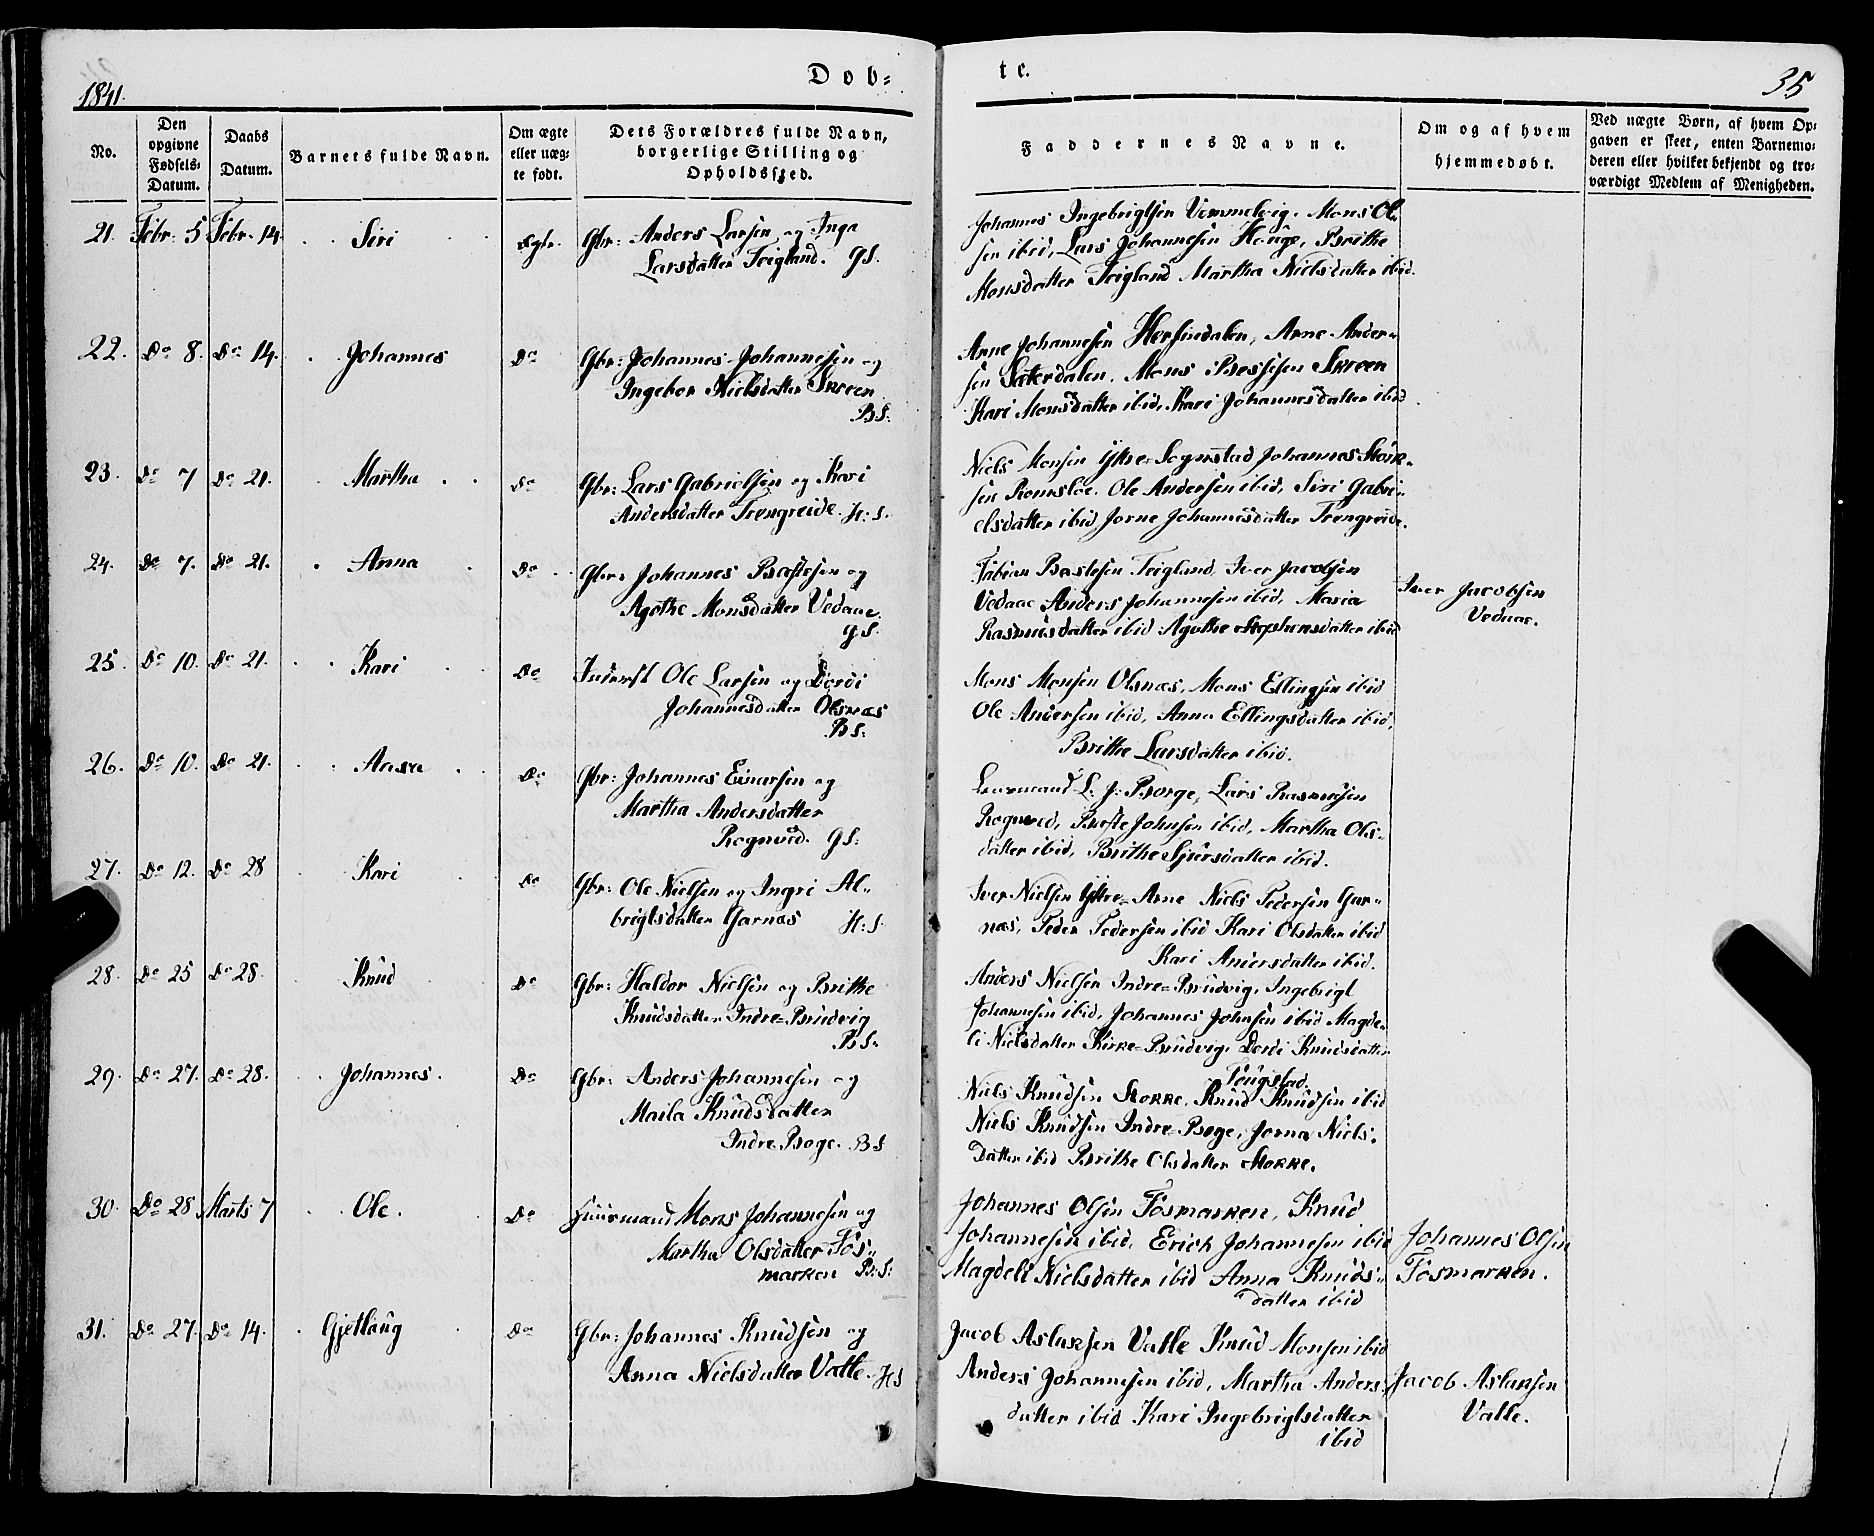 1841.
Døb-
te.
35
No.
Den opgivne Fødsels-Datum.
Daabs Datum.
Barnets fulde Navn.
Om ægte eller uæg-te født.
Dets Forældres fulde Navn, borgerlige Stilling og Opholdssted.
Faddernes Navne.
Om og af hvem hjemmedøbt.
Ved uægte Børn, af hvem Op-gaven er skeet, enten Barnemo-deren eller hvilket bekjendt og tro-værdigt Medlem af Menigheden.
21. Febr. 5 Febr. 14. Siri Ægte. Gbr: Anders Larsen og Inga
Larsdatter Teigland. GS.
Johannes Ingebrigtsen Vemmelvig. Mons Ol-
sen ibid, Lars Johannesen Houge, Brithe
Monsdatter Teigland Martha Nielsdatter ibid.
22. Do 8. Do 14. Johannes Do Gbr: Johannes Johannesen og
Ingebor Nielsdatter Skreen
BS:
Arne Johannesen Hersindalen, Arne Ander-
sen Sæterdalen. Mons Brosisen Skreen
Kari Monsdatter ibid, Kari Johannesdatter ibid
23. Do 7 Do 21. Martha Do Gbr: Lars Gabrielsen og Kari
Andersdatter Trengreide. H:S.
Niels Monsen Ytre-Sognstad Johannes
sen Romsloe. Ole Andersen ibid, Siri Gabri-
elsdatter ibid Jorne Johannesdatter Trengreide.
24. Do 7. Do 21. Anna Do Gbr: Johannes Bastesen og
Agothe Monsdatter Vedaae.
GS.
Fabian Bastesen Teigland, Iver Jacobsen
Vedaae Anders Johannesen ibid, Maria
Rasmusdatter ibid Agothe Stephensdatter ibid
Iver Jacobsen
Vedaae.
25. Do 10. Do 21. Kari Do Inderst Ole Larsen og Dordi
Johannesdatter Olsnæs
BS:
Mons Monsen Olsnæs, Mons Ellingsen ibid
Ole Andersen ibid, Anna Ellingsdatter ibid,
Brithe Larsdatter ibid.
26. Do 10. Do 21. Aasa Do Gbr: Johannes Einarsen og
Martha Andersdatter
Rognved. GS:
L: J: Borge, Lars Rasmusen
Rognved, Børste Johnsen ibid, Martha Ols-
datter ibid, Brithe Sjursdatter ibid.
27. Do 12. Do 28 Kari Do Gbr: Ole Nielsen og Ingri Al-
brigtsdatter Garnæs H:S.
Iver Nielsen Ytre-Arne Niels Pedersen Gar-
næs, Peder Pedersen ibid Kari Olsdatter ibid
Kari Andersdatter ibid.
28. Do 25 Do 28. Knud Do Gbr: Haldor Nielsen og Brithe
Knudsdatter Indre-Brudvig
BS:
Anders Nielsen Indre-Brudvig, Ingebrigt
Johannesen ibid, Johannes Johnsen ibid Magde-
li Nielsdatter Kirke-Brudvig, Dordi Knudsdatter
29. Do 27. Do 28. Johannes. Do Gbr: Anders Johannesen og
Marla Knudsdatter
Indre Boge. BS
Niels Knudsen Storke, Knud Knudsen ibid
Niels Knudsen Indre-Boge, Jorna Niels-
datter ibid Brithe Olsdatter Storke.
30. Do 28 Marts 7 Ole. Do Huusmand Mons Johannesen og
Martha Olsdatter Fos-
marken B:S:
Johannes Olsen Fosmarken, Knud
Johannesen ibid, Erich Johannesen ibid
Magdeli Nielsdatter ibid Anna Knuds-
datter ibid
Johannes Olsen
Fosmarken.
31. Do 27. Do 14. Gjetlaug Do Gbr: Johannes Knudsen og
Anna Nielsdatter Valle. HS
Jacob Aslaksen Valle Knud Monsen ibid
Anders Johannesen ibid, Martha Anders
datter ibid Kari Ingebrigtsdatter
ibid
Jacob Aslaksen
Valle.